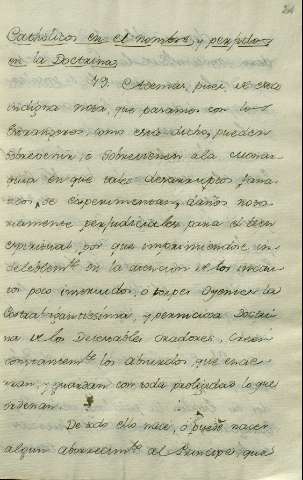 Catholicos en el nombre, y perfidos
en la Doctrina,
79. Ademas, pues, de esta
indigna nota, que causamos con los
Extrangeros, como está dicho, pueden
sobrevenir, o sobrevienen a la Monar
quia en que tales
se experimentan, daños
perjudiciales para el bien
espiritual, por que imprimiendose in
deleblemte. en la atencion de los
poco instruidos, o torpes Oyentes la
y perniciosa Doctri
na de los Detestables Oradores, Creen
constantemte. los absurdos, que ense
ñan, y guardan con toda prolijidad lo que
ordenan.
De todo ello nace, o puede nacer
algun aborrecimto. al Principe, que